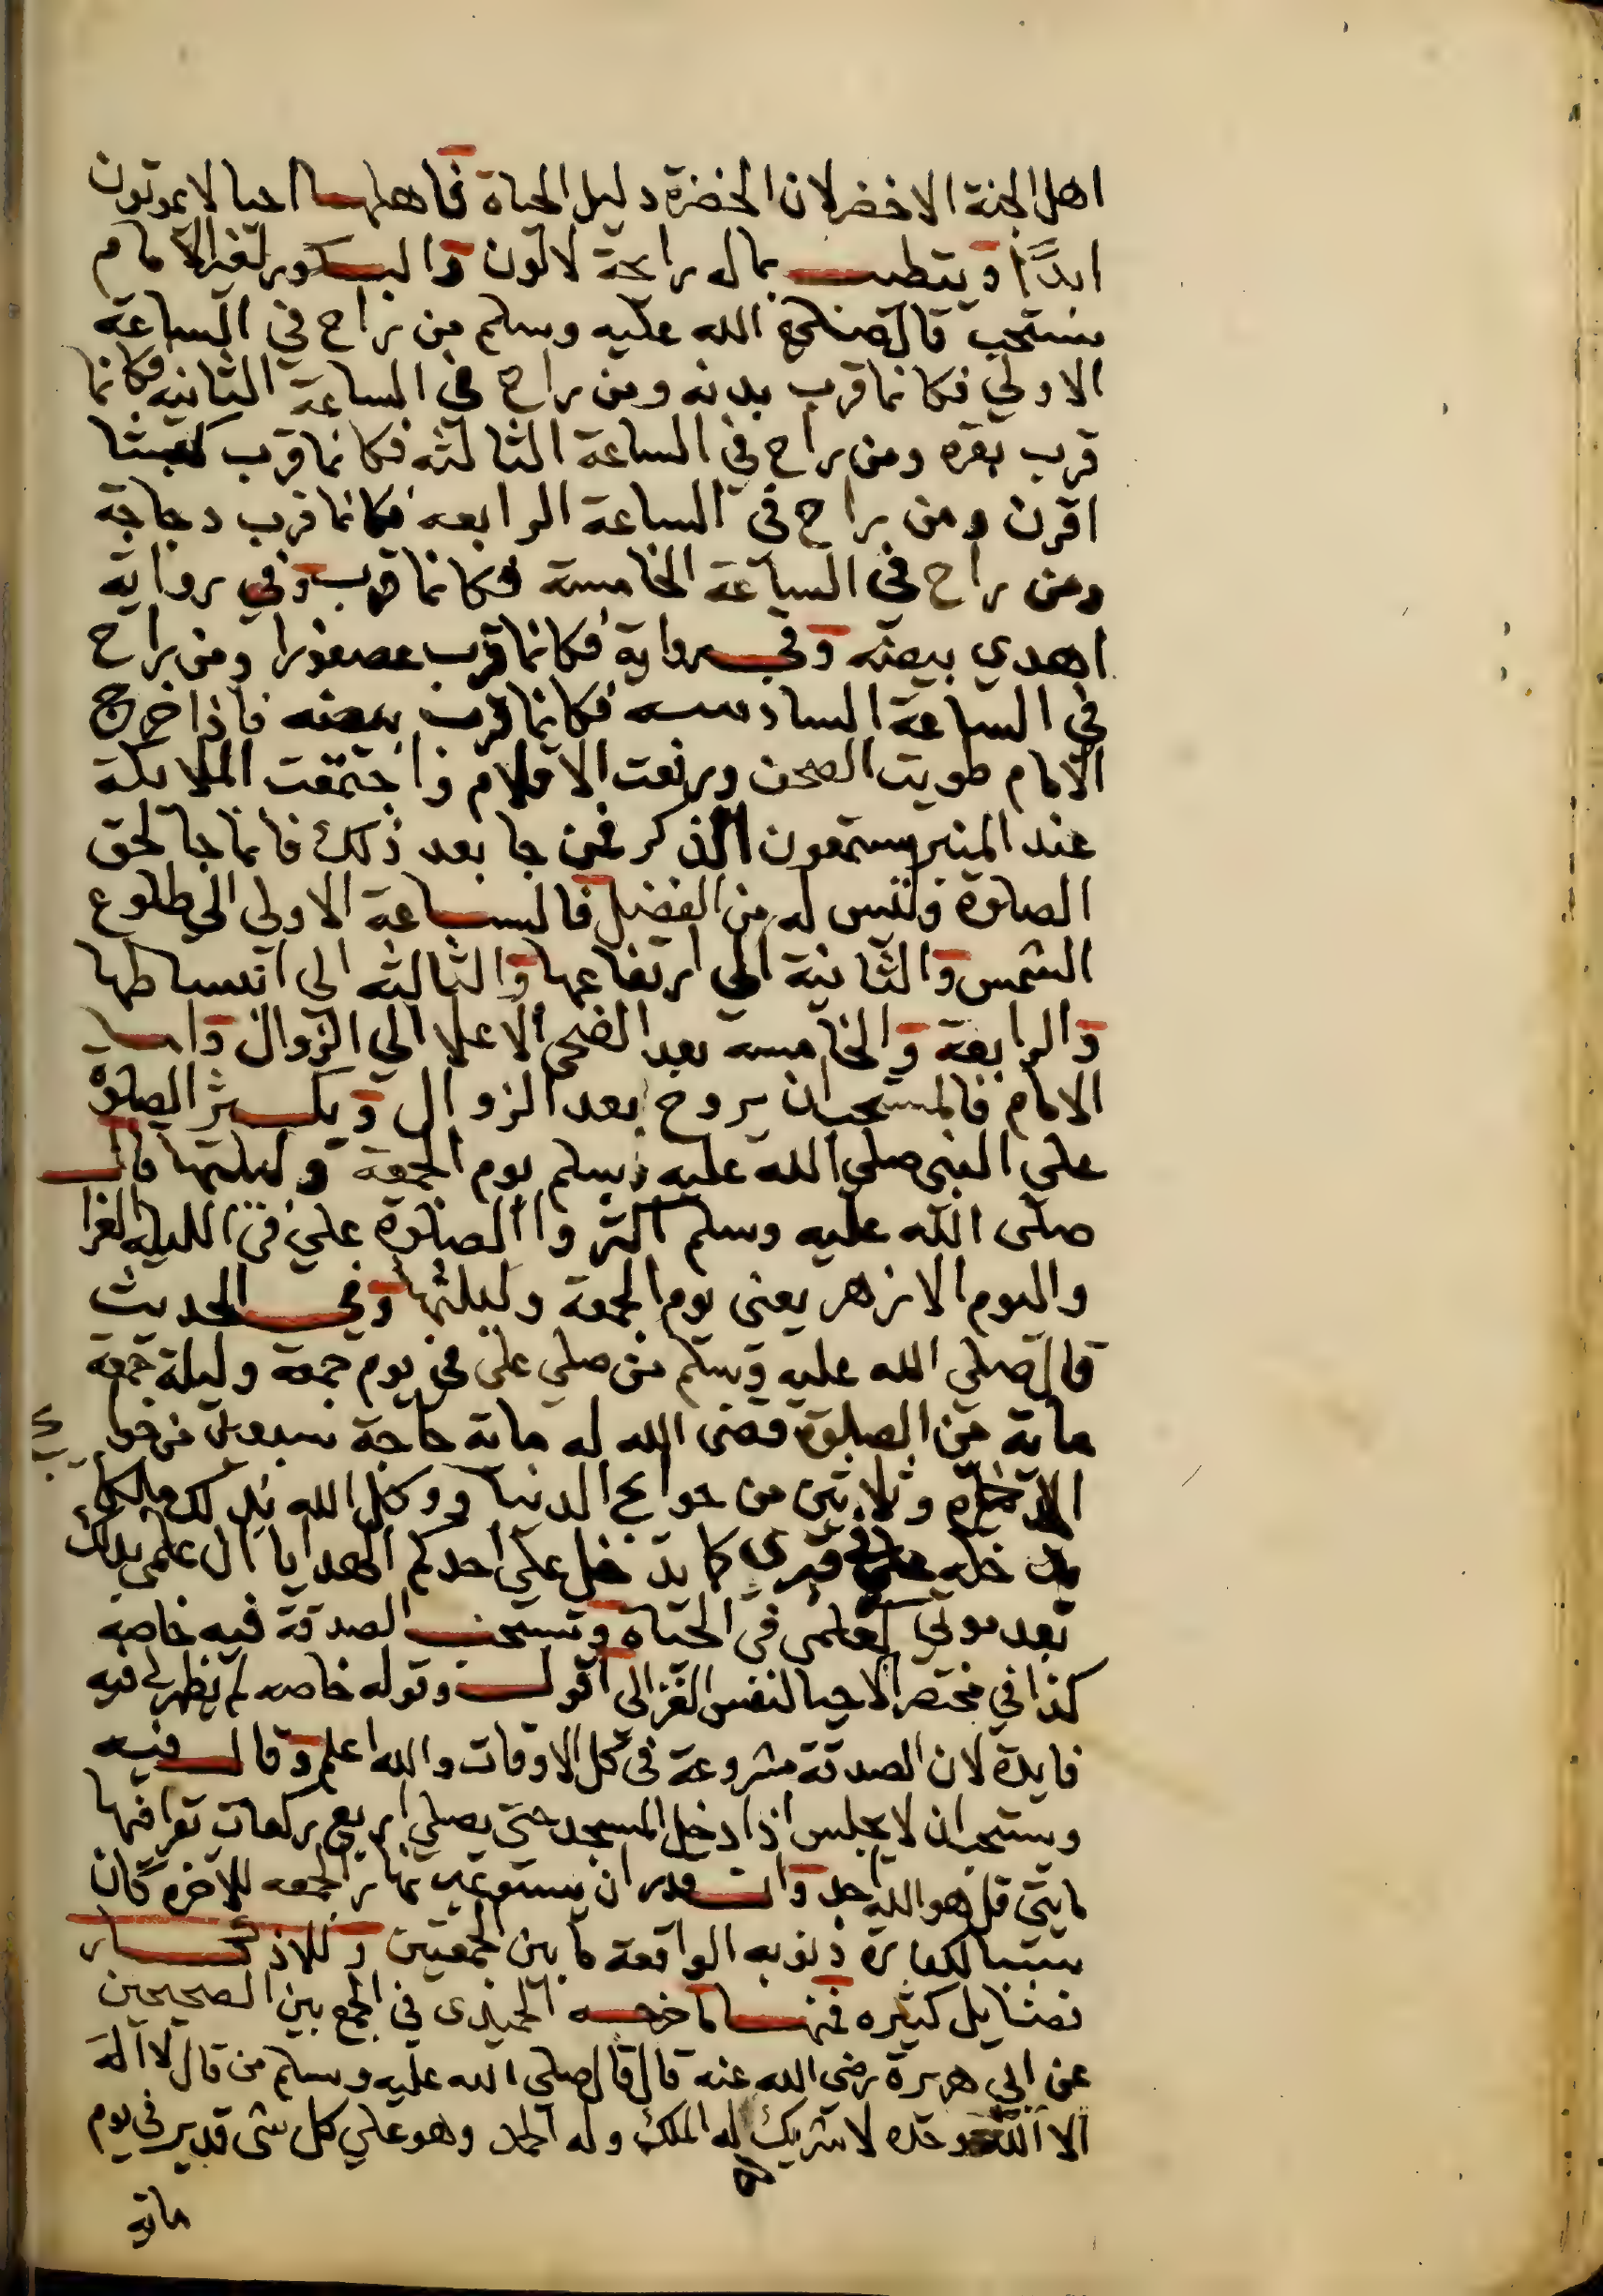 اهل الجنة الاخضر لان الخضرة دليل الحياة فاهلها احيا لا يموتون
ابدًا ويتطيب بماله رائحة لا لون والبكور لغير الامام
مستحب قال صلى الله عليه وسلم من راح في الساعة
الاولي فكانما قرب بدنه ومن راح في الساعة الثانيه فكانما
قرب بقره ومن راح في الساعة الثالثه فكانما قرب كبشا
اقرن ومن راح في الساعة الرابعه فكانما قرب دجاجة
ومن راح في الساعة الخامسة فكانما قرب وفي رواية
اهدي بيضه وفي رواية فكانما قرب عصفورا ومن راح
في الساعة السادسه فكانما قرب بيضه فاذا خرج
الامام طويت الصحف ورفعت الاقلام واجتمعت الملائكة
عند المنبر يستمعون الذكر فمن جا بعد ذلك فانما جا لحق
الصلوة وليس له من الفضل فالساعة الاولى الى طلوع
الشمس والثانية الي ارتفاعها والثالثه الى انبساطها
والرابعة والخامسه بعد الضحى الاعلا الي الزوال واما
الامام فالمستحب ان يروح بعد الزوال ويكثر الصلوة
علي النبي صلي الله عليه وسلم يوم الجمعة وليلتها قال
صلى الله عليه وسلم اكثروا الصلوة علي في الليله الغرا
واليوم الازهر يعنى يوم الجمعة وليلتها وفي الحديث
قال صلي الله عليه وسلم من صلي على في يوم جمعة وليلة جمعة
ماية من الصلوة قضى الله له ماية حاجة سبعين من حوايج
الاخره وثلاثين من حوائج الدنيا ووكل الله بذلك ملكا
يدخله في قبري كما يدخل علي احدكم الهدايا ان علمي بذلك
بعد موتي كعلمي في الحياة وتستحب الصدقة فيه خاصه
كذا في مختصر الاحيا لنفس الغزالى اقول وقوله خاصه لم يظهر لي فيه
فايدة لان الصدقة مشروعة في كل الاوقات والله اعلم وقال فيه
ويستحب ان لا يجلس اذا دخل المسجد حتى يصلي اربع ركعات يقرا فيها
مايتي قل هو الله احد وان قدر ان يستوعب نهار الجمعه للاخره كان
سببا لكفارة ذنوبه الواقعة ما بين الجمعتين وللاذكار
فضايل كثيره فمنها ما خرجه الحميدى في الجمع بين الصحيحين
عن ابي هريرة رضي الله عنه قال قال صلي الله عليه وسلم من قال لا اله
الا الله وحده لا شريك له الملك وله الحمد وهو علي كل شي قدير في يوم
ماية